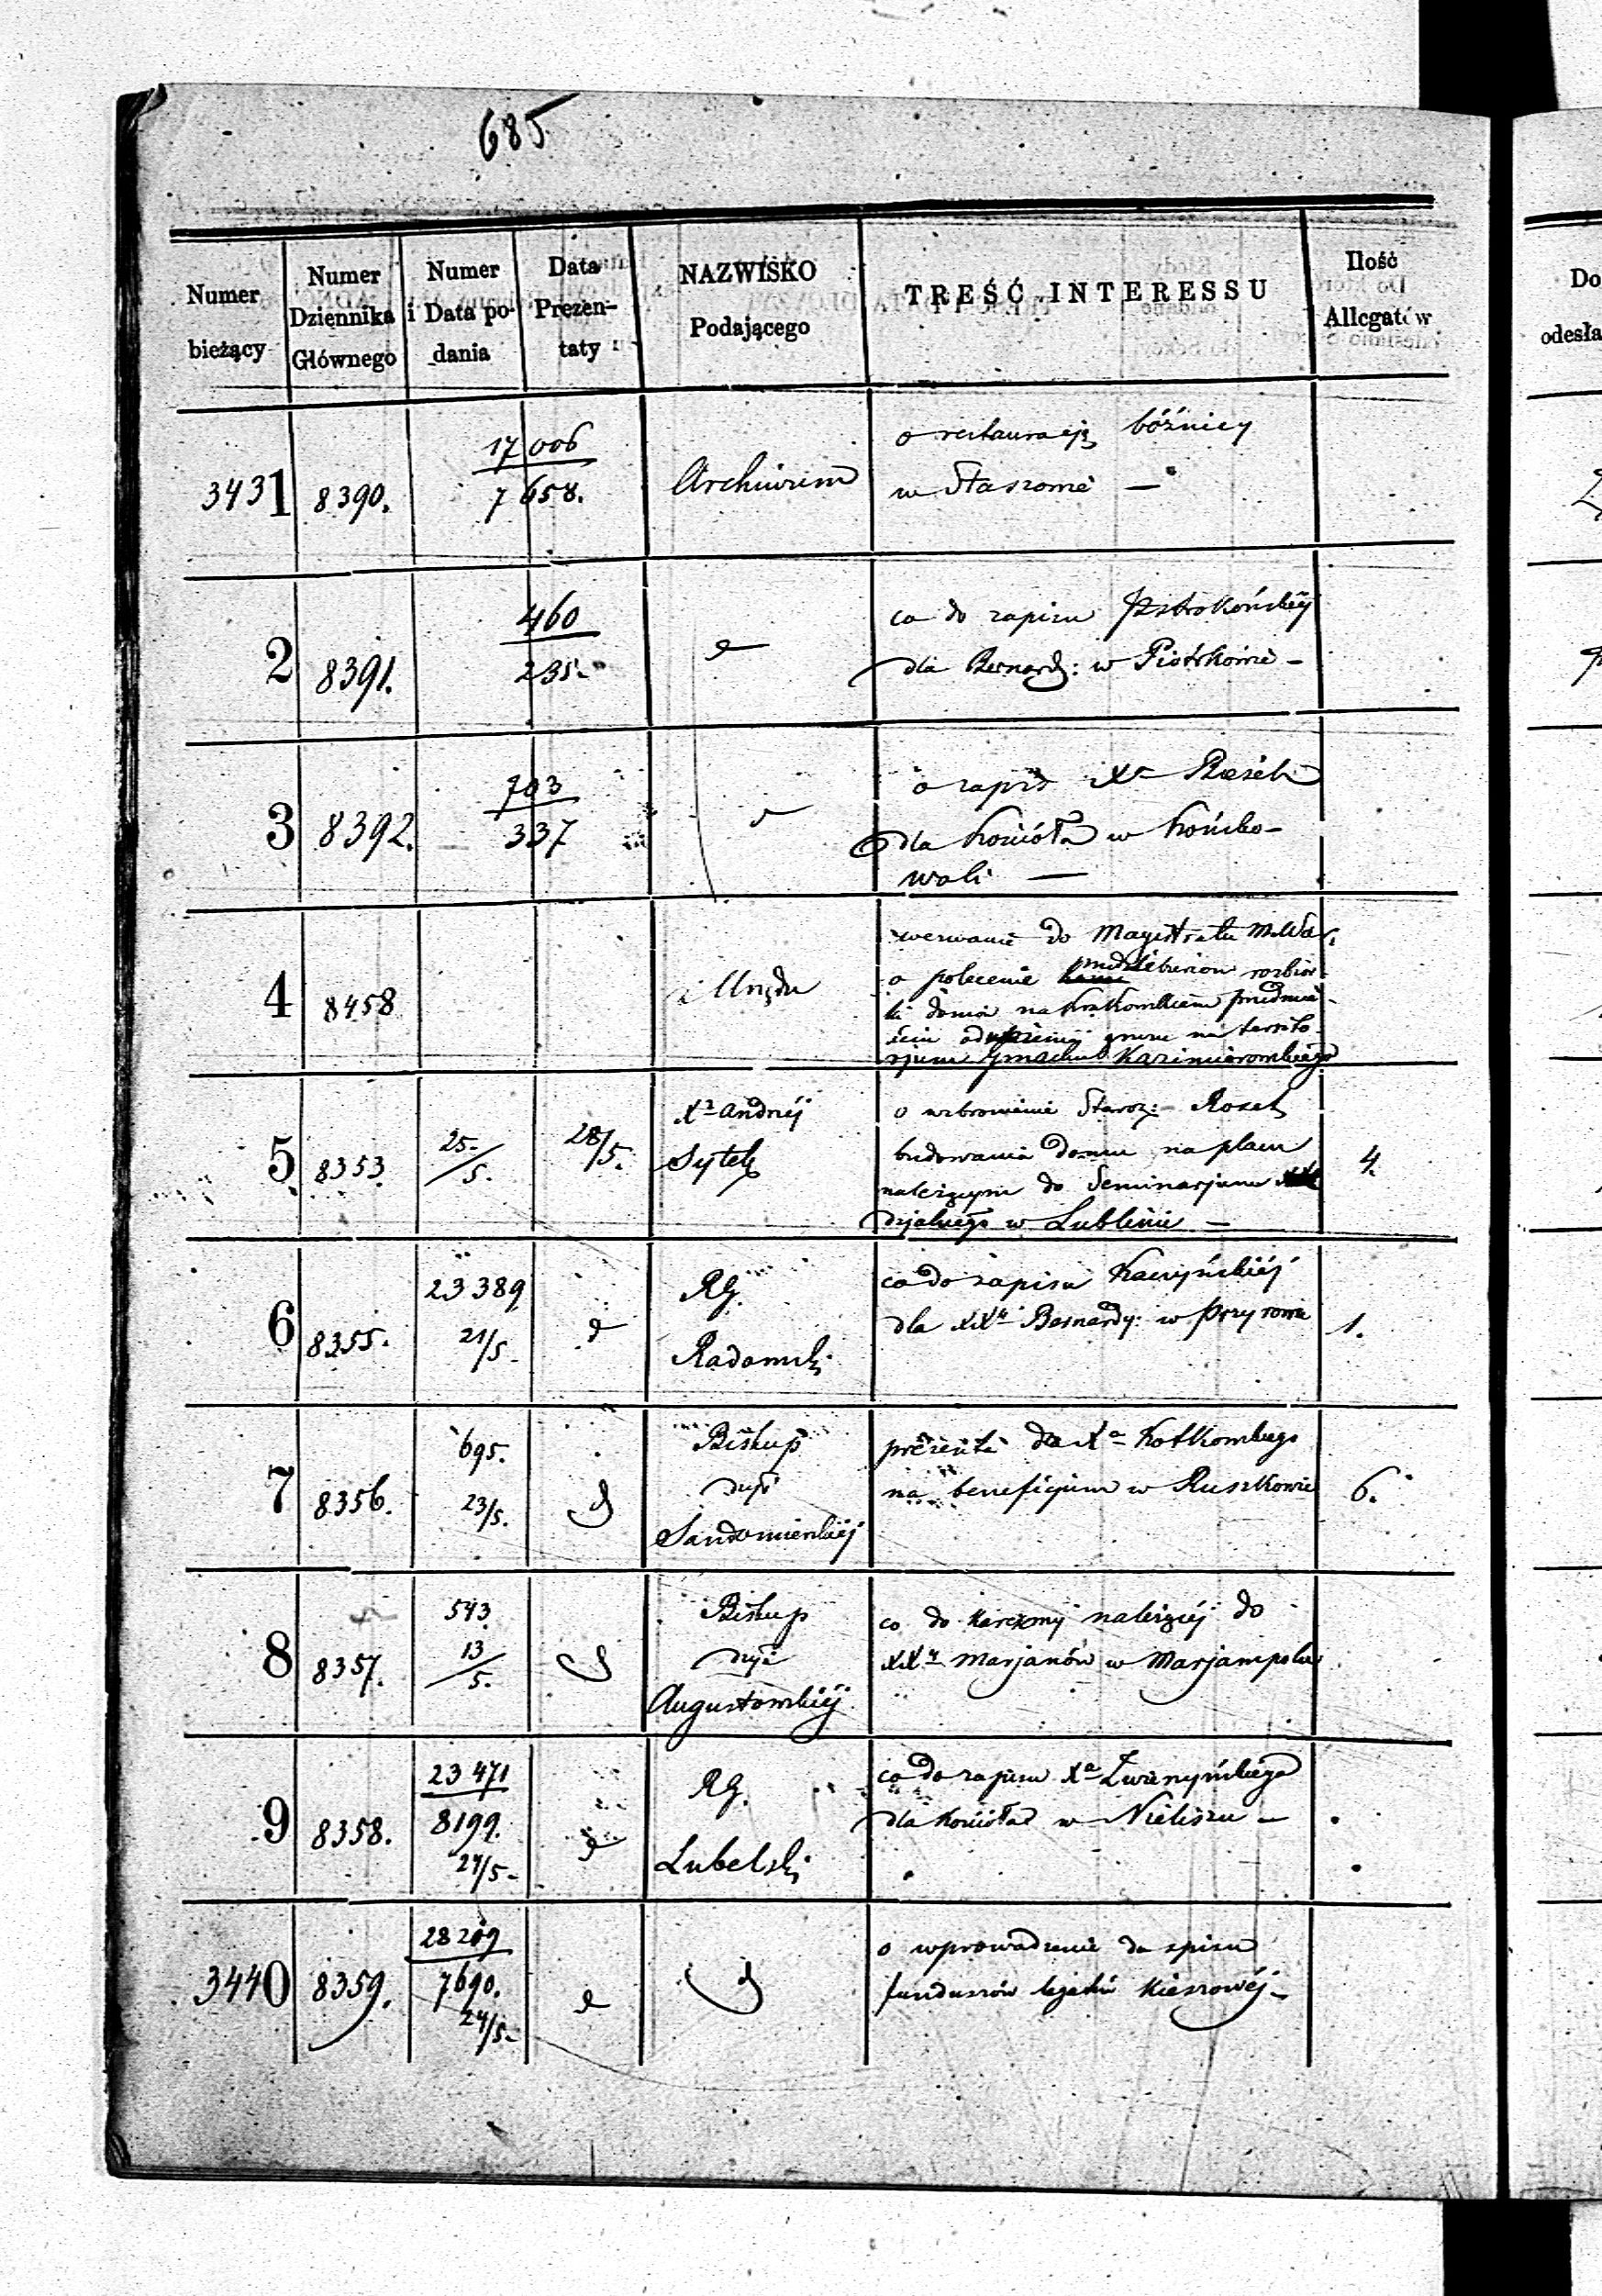 685
Numer bieżący
Numer Dziennika Głównego
Numer i Data podania
Data Prezentaty
NAZWISKO Podającego
TREŚĆ INTERESSU
Ilość Allegatów
3431 8390. 17006 / 7658. Archiwum
o restauracją bóźnicy
w Staszowie —
2 8391. 460 / 235.
co do zapisu
dla Bernard: w Piotrkowie —
3 8392. 703 / 337
o zapis Xa
dla kościoła w Końsko-
woli —
4 8458 z Urzędu
wezwanie do Magistratu M. War.
o polecenie rozbiór-
ki domu na Krakowskiem przedmie-
ściu gruzu na territo-
rjum Gmachu Kazimierowskiego
5 8353 25/5. 28/5. Xa Andrzej
Sytek 4.
o wzbronienie Staroz: Rozet
budowania domu na placu
należącym do Seminarjum
dzjalnego w Lublinie —
6 8355. 23389 21/5. RG.
Radomski 1.
co do zapisu Kaczyńskiej
dla XXw Bernardy: w Przyrowie
7 8356. 695. 23/5. Biskup
dyi
Sandomierskiej 6.
prezenta dla Xa Kotkowskiego
na beneficjum w Ruszkowie
8 8357. 543 13/5. Biskup
dyi
Augustowskiej
co do karczmy należącej do
XXw Marjanów w Marjampolu
9 8358. 23471 / 8199. 24/5 RG.
Lubelski
co do zapisu Xa
dla kościoła w Nieliszu —
3440 8359. 28209 / 7690. 24/5
o wprowadzenie do spisu
funduszów legatu Kieszowéj —
Do
odesła